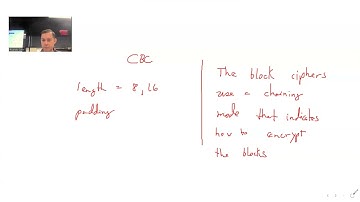 CBC
length = 8, 16
padding
The block ciphers
use a chaining
mode that indicates
how to encrypt
the blocks